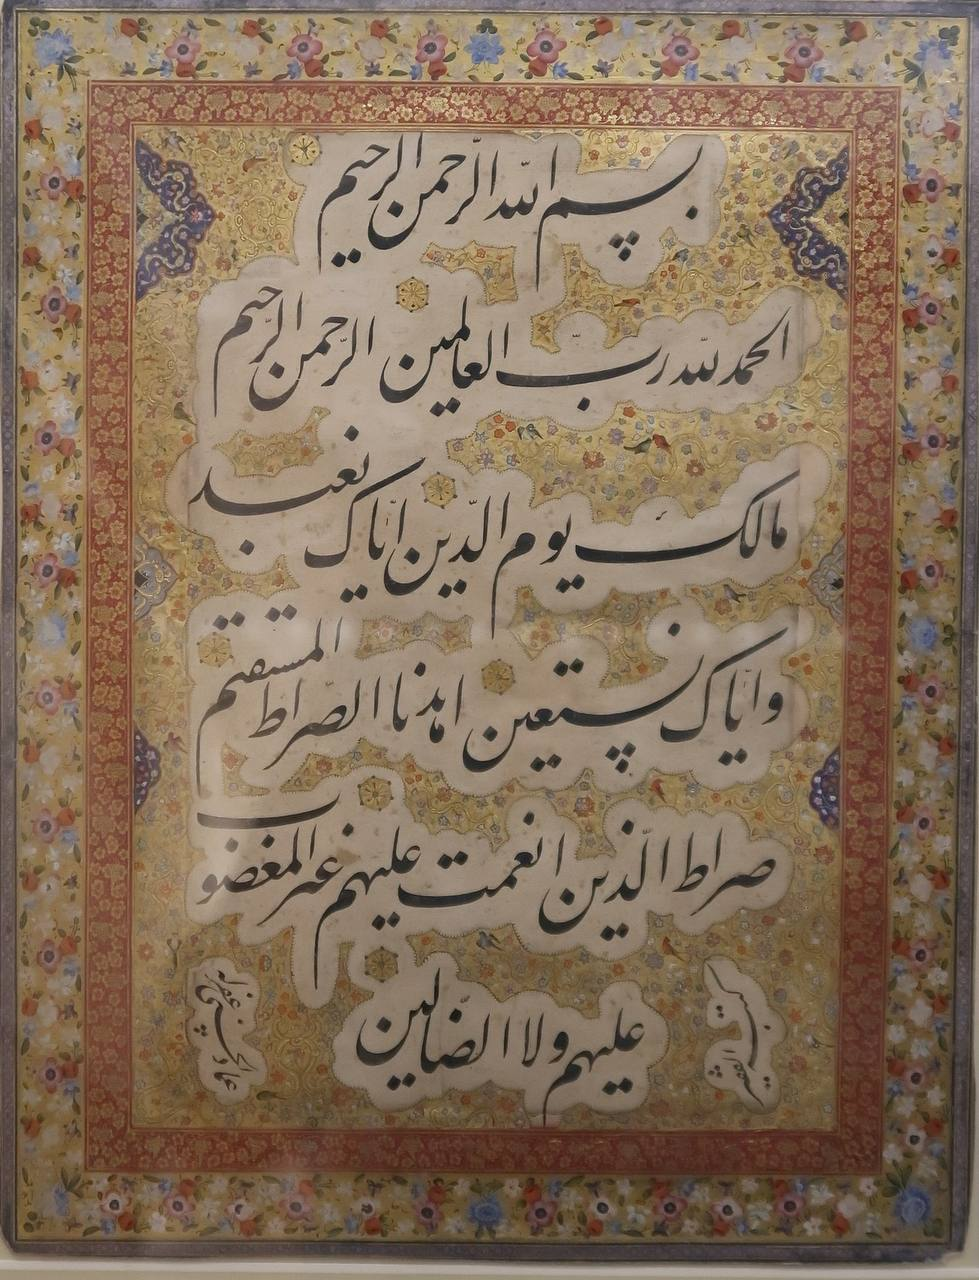 بسم الله الرّحمن الرحیم
الحمد لله ربّ العالمین الرّحمن الرحیم
مالک یوم الدّین ایّاک نعبد
وایّاک نستعین اهدنا الصّراط المستقیم
صراط الّذین انعمت علیهم غیر المغضوب
علیهم ولا الضّالین
کتبه الفقیر
عماد الحسنی غفر له